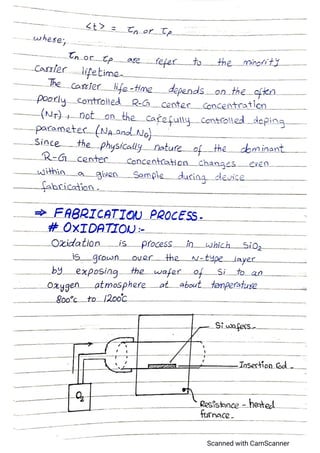 <t> = τn or τp
where;
τn or τp are refer to the minority
Carrier lifetime.
The carrier life-time depends on the often
poorly controlled R-G center concentration
(NT), not on the carefully controlled doping
parameter (NA and ND)
Since the physically nature of the dominant
R-G center concentration changes even
within a given sample during device
fabrication.
⇒ FABRICATION PROCESS.
# OXIDATION :-
Oxidation is process in which SiO2
is grown over the N-type layer
by exposing the wafer of Si to an
Oxygen atmosphere at about temperature
800°c to 1200°C
Si wafers.
Insertion Rod.
O2
Resistance - heated
furnace.
Scanned with CamScanner